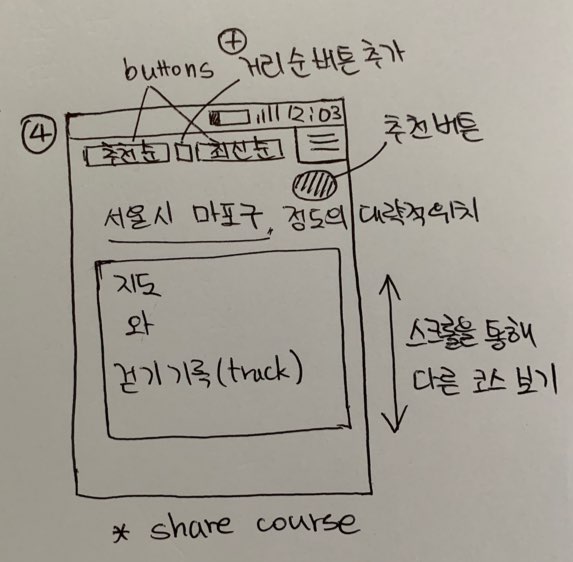 ⊕
buttons 거리순 버튼 추가
④
12:03
추천순 최신순
추천버튼
서울시 마포구, 정도의 대략적위치
지도
와
걷기 기록(track)
스크롤을 통해
다른 코스 보기
* share course